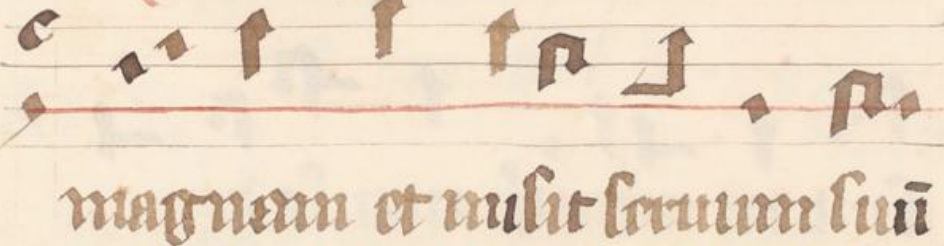 magnam et misit seruum suū